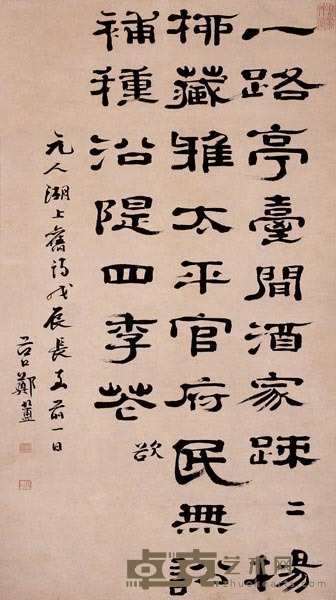 一路亭臺間酒家踈〻楊
栁藏雅太平官府民無訟
補種沿隄四季花 欲
元人湖上舊詩戊辰長至前一日
谷口鄭簠
卓克艺术网